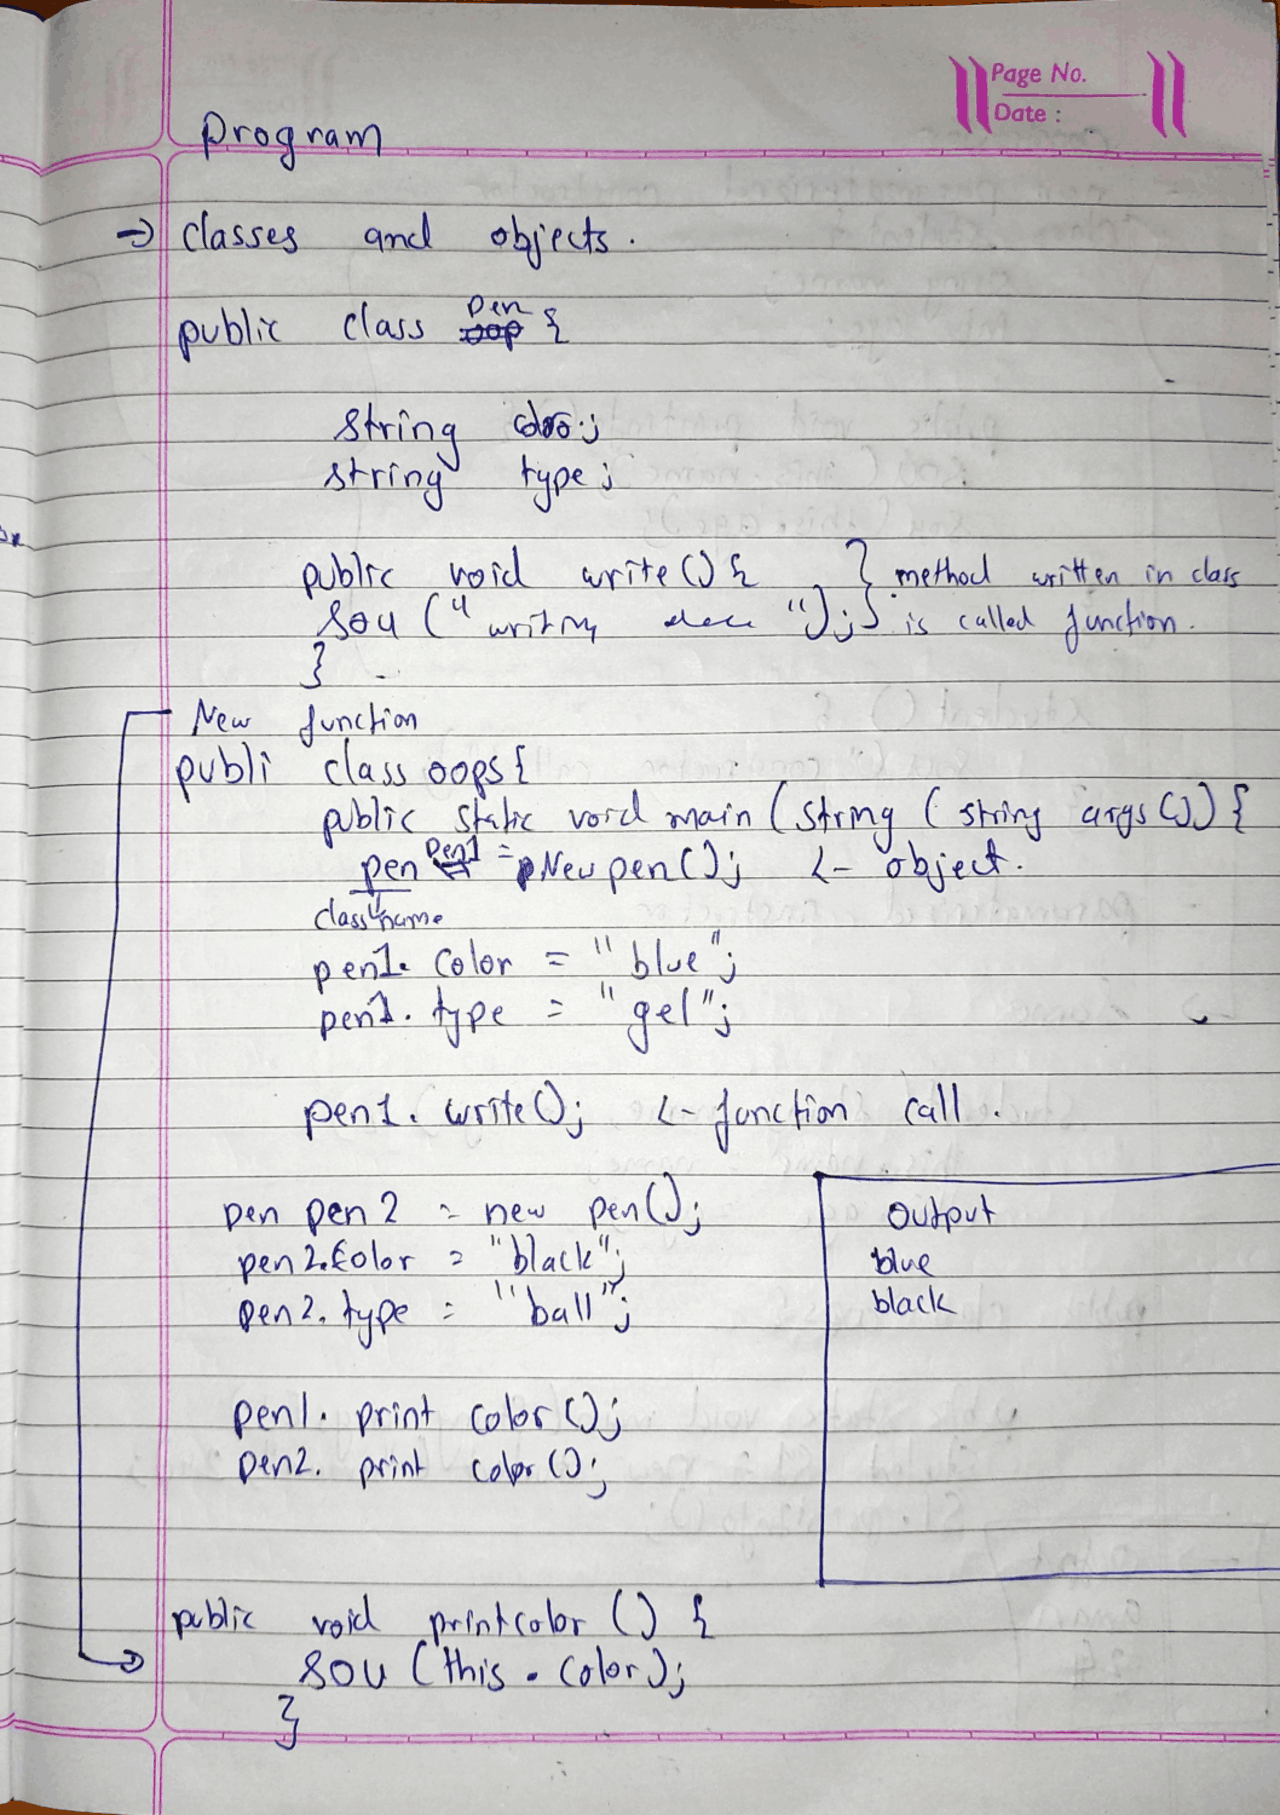 Page No.
Date :
Program
→ classes and objects.
public class Pen {
string color;
string type;
public void write () {
sou (" writing ");
} method written in class
is called function.
}
New function
publi class oops {
public static void main (string ( string args ()) {
pen pen1 = New pen(); <- object.
class name
pen1. color = "blue";
pen1. type = "gel";
pen1. write(); <- function call.
pen pen2 = new pen();
pen2.color = "black";
pen2. type = "ball";
pen1. print color ();
pen2. print color ();
output
blue
black
public void printcolor () {
sou (this . color);
}